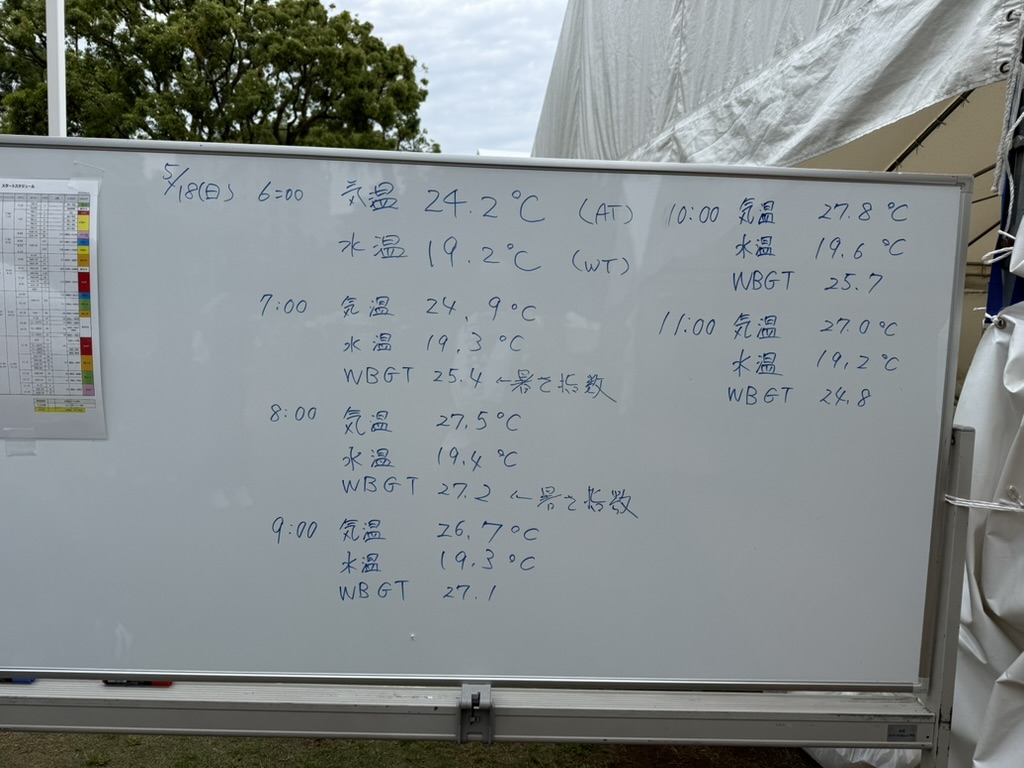 スタートスケジュール
5/18(日) 6:00 気温 24.2℃ (AT)
水温 19.2℃ (WT)
7:00 気温 24.9℃
水温 19.3℃
WBGT 25.4 ←暑さ指数
8:00 気温 27.5℃
水温 19.4℃
WBGT 27.2 ←暑さ指数
9:00 気温 26.7℃
水温 19.3℃
WBGT 27.1
10:00 気温 27.8℃
水温 19.6℃
WBGT 25.7
11:00 気温 27.0℃
水温 19.2℃
WBGT 24.8